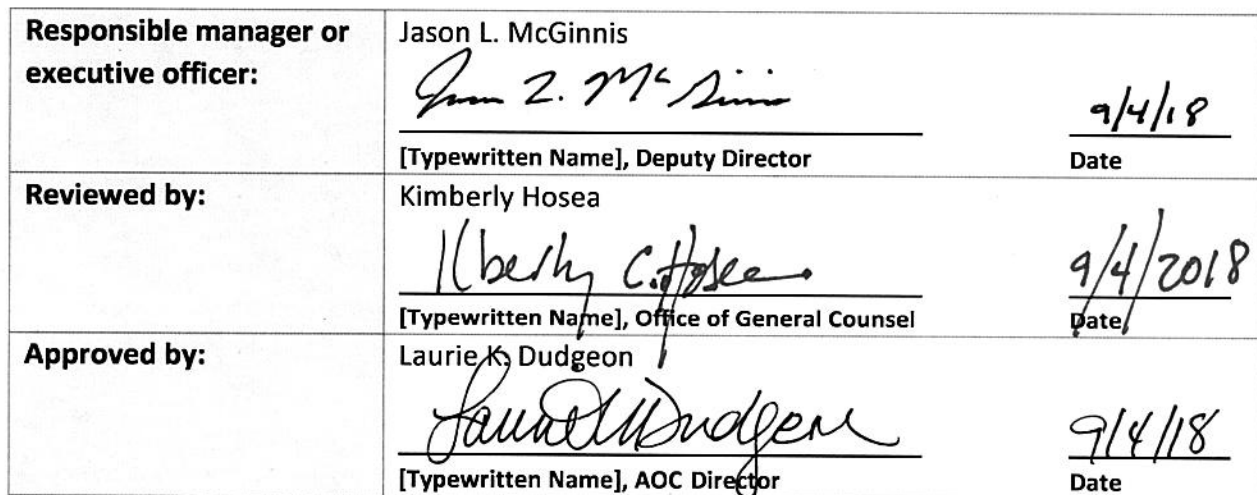 Responsible manager or
executive officer:
Jason L. McGinnis
Jason L. McGinnis
9/4/18
[Typewritten Name], Deputy Director
Date
Reviewed by:
Kimberly Hosea
Kimberly C. Hosea
9/4/2018
[Typewritten Name], Office of General Counsel
Date
Approved by:
Laurie K. Dudgeon
Laurie K Dudgeon
9/4/18
[Typewritten Name], AOC Director
Date